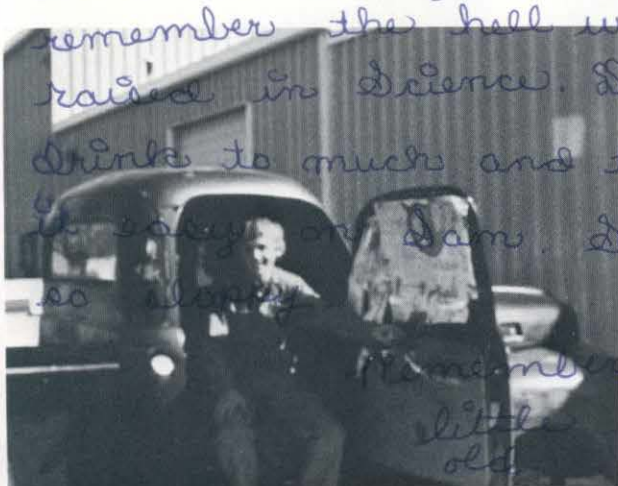 remember the hell w
raised in Science. D
drink to much and
it easy on Sam. S
so sloppy
Remember
little
old